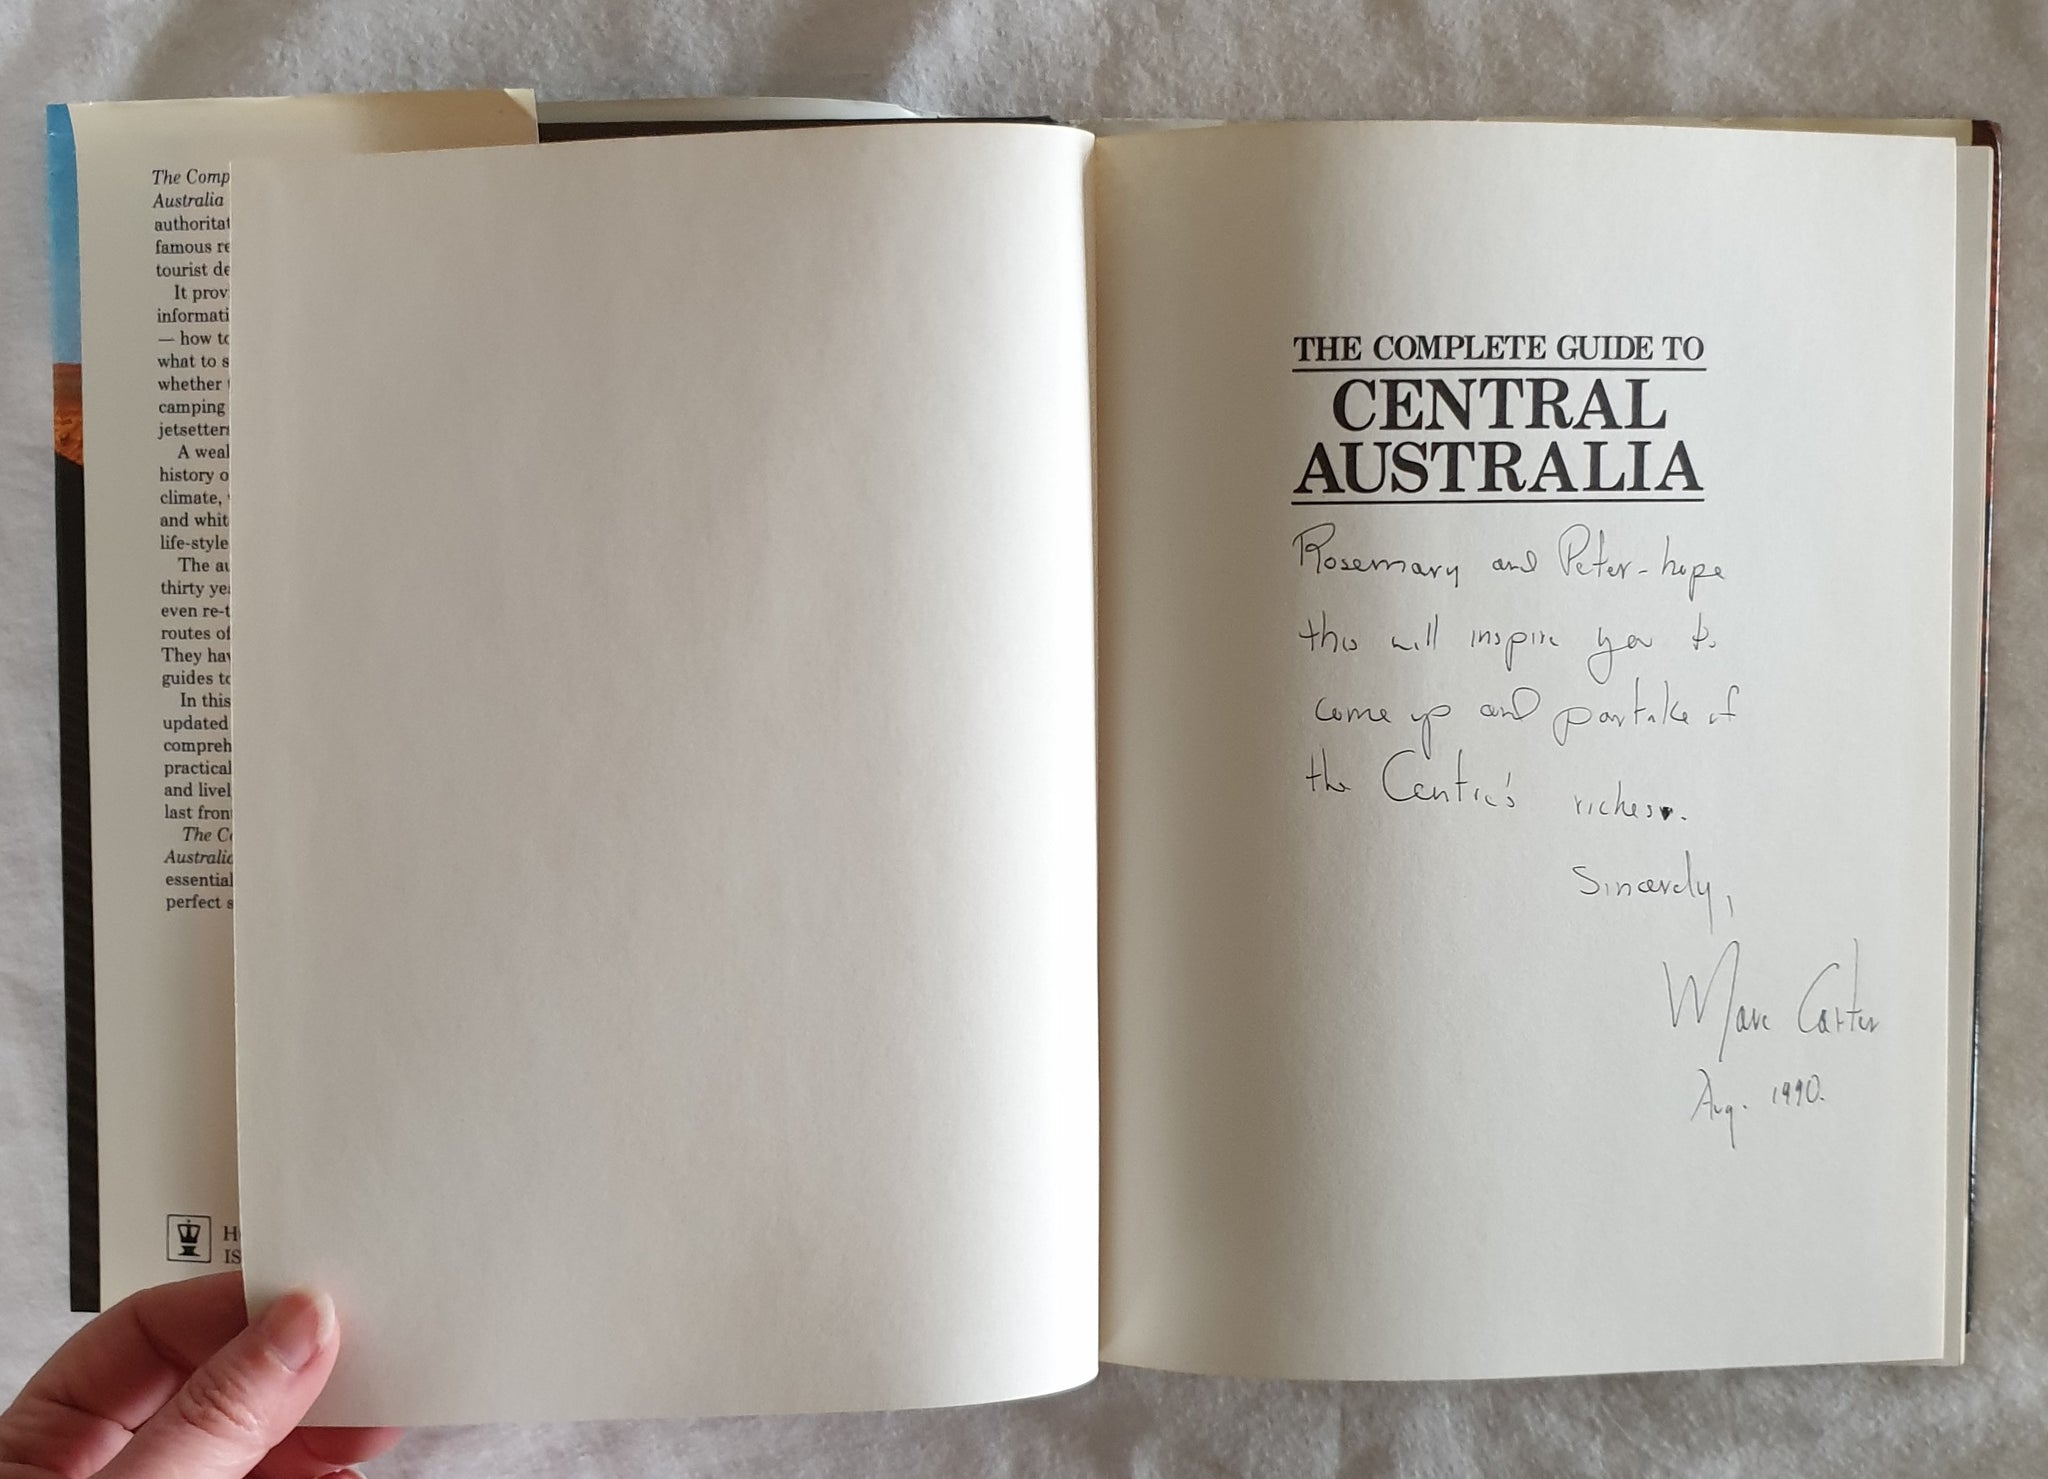 The Comp
Australia
authoritat
famous re
tourist de
It prov
informati
— how to
what to s
whether
camping
jetsetters
A weal
history o
climate,
and whit
life-style
The au
thirty ye
even re-t
routes of
They hav
guides to
In this
updated
compreh
practical
and livel
last fron
The Co
Australia
essential
perfect s
H
IS
THE COMPLETE GUIDE TO
CENTRAL
AUSTRALIA
Rosemary and Peter - hope
this will inspire you to
come up and partake of
the Centre's riches.
Sincerely,
Marc Carter
Aug. 1990.